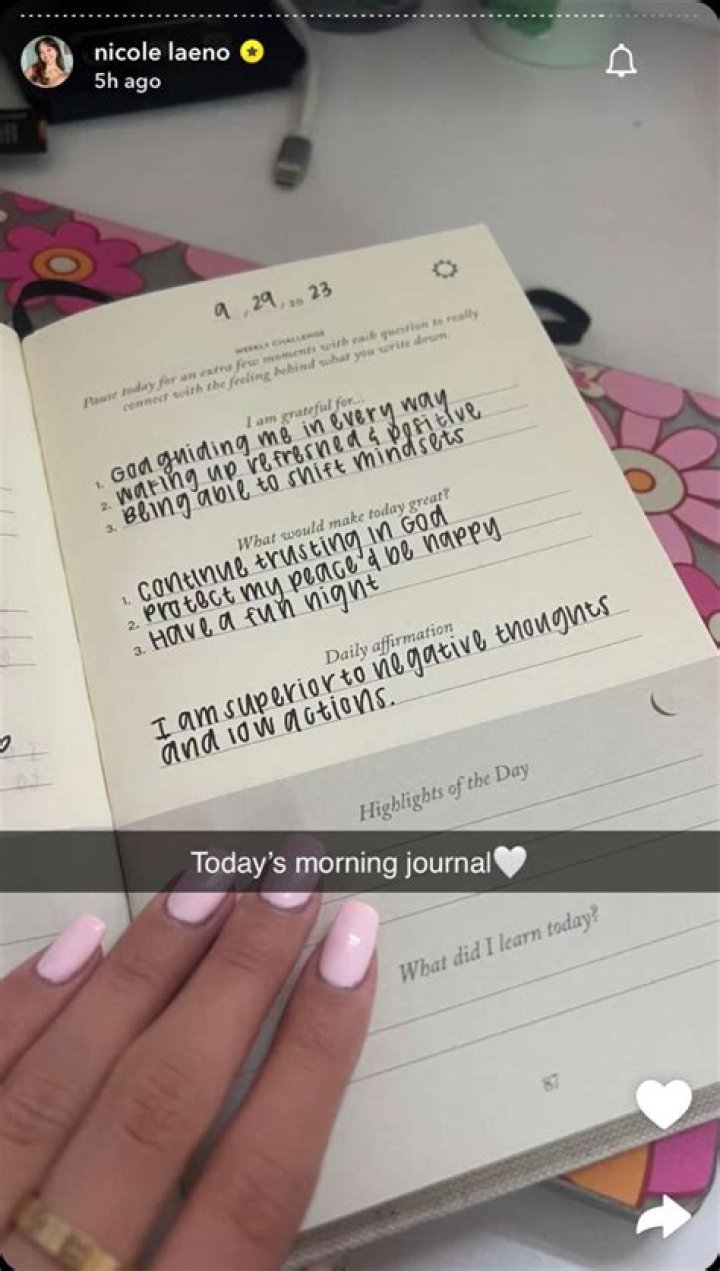 nicole laeno
5h ago
9 , 29 , 20 23
WEEKLY CHALLENGE
Pause today for an extra few moments with each question to really
connect with the feeling behind what you write down.
I am grateful for...
1. God guiding me in every way
2. waking up refreshed & positive
3. Being able to shift mindsets
What would make today great?
1. continue trusting in God
2. protect my peace & be happy
3. Have a fun night
Daily affirmation
I am superior to negative thoughts
and low actions.
Highlights of the Day
Today's morning journal🤍
What did I learn today?
87